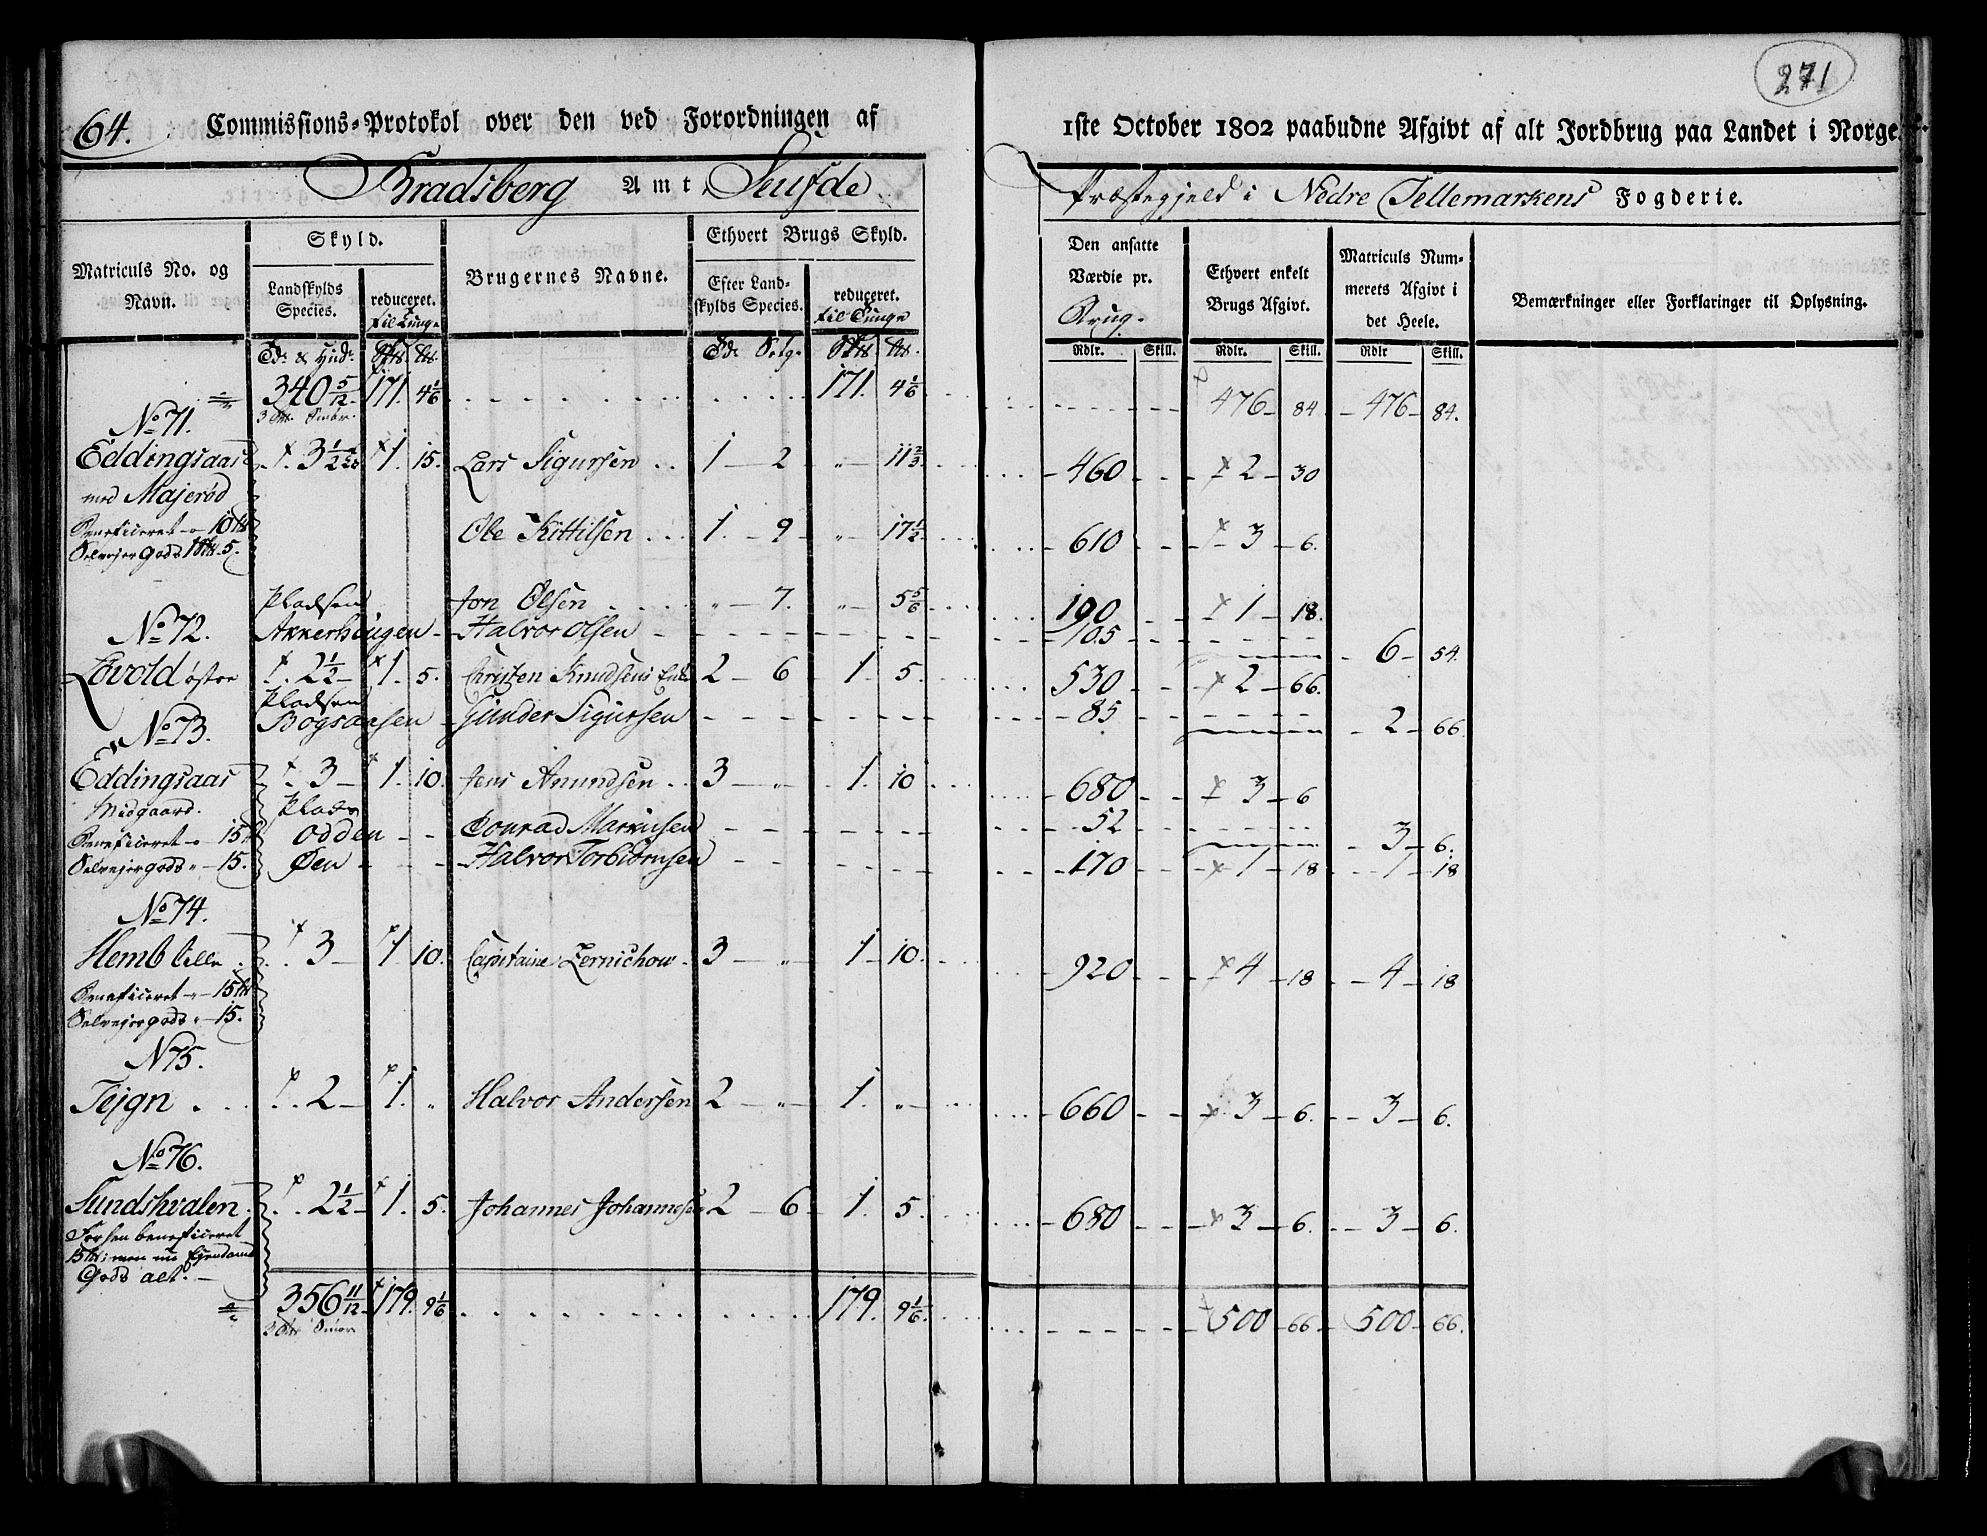 64. Commissions-Protokol over den ved Forordningen af
1ste October 1802 paabudne Afgivt af alt Jordbrug paa Landet i Norge.
271
Bradsberg Amt, Seufde
Præstegjeld i Nedre Tellemarkens Fogderie.
Matriculs No. og Navn.
Skyld.
Landskylds Species.
reduceret. til Tunge
Brugernes Navne.
Ethvert Brugs Skyld.
Efter Landskylds Species.
reduceret. til Tunge
Den ansatte Værdie pr. Brug.
Ethvert enkelt Brugs Afgivt.
Matriculs Nummerets Afgivt i det Heele.
Bemærkninger eller Forklaringer til Oplysning.
Rdlr. Skill. Rdlr. Skill. Rdlr Skill.
340 5/12 171. 4 1/6 171. 4 1/6 476 84 476 84.
3 Smör
No 71.
Eddingsaas 3 1/2 1. 15. Lars Sigursen 1 2 " 11 2/3 460 2 30
med Majerød
Beneficeret 10
Selvejergods 5. Ole Kittilsen 1. 9 " 17 1/2 610 3 6.
Pladsen Jon Olsen " 7. " 5 5/6 190 1 18.
No 72. Akkerhougen Halvor Olsen 105 6 54.
Lövold østre 2 1/2 1. 5. Christen Knudsens Enke 2 6 1. 5. 530 2 66.
Pladsen
No 73. Bogsaasen Gunder Sigursen 85 2 66
Eddingsaas 3 1. 10. Jens Amundsen 3 " 1. 10 680 3 6
Midgaard. Plads
Beneficeret 15 Odden Conrad Markusen 52 3 6.
Selvejergods 15. Øen Halvor Torbiörnsen 170 1 18 1 18
No 74.
Hemb lille 3 1 10. Capitaine Zernichow 3 " 1 10. 920 4 18 4 18
Beneficeret 15
Selvejergods 15.
No 75.
Tejgn 2 1. " Halvor Andersen 2 " 1. " 660 3 6. 3 6.
No 76.
Sundshvalen 2 1/2 1. 5. Johannes Johannesen 2 6 1. 5. 680 3 6. 3 6.
Forhen beneficeret
men nu Ejendoms
Gods alt.
356 11/12 179. 9 1/6 179. 9 1/6 500 66 500 66.
3 Smör